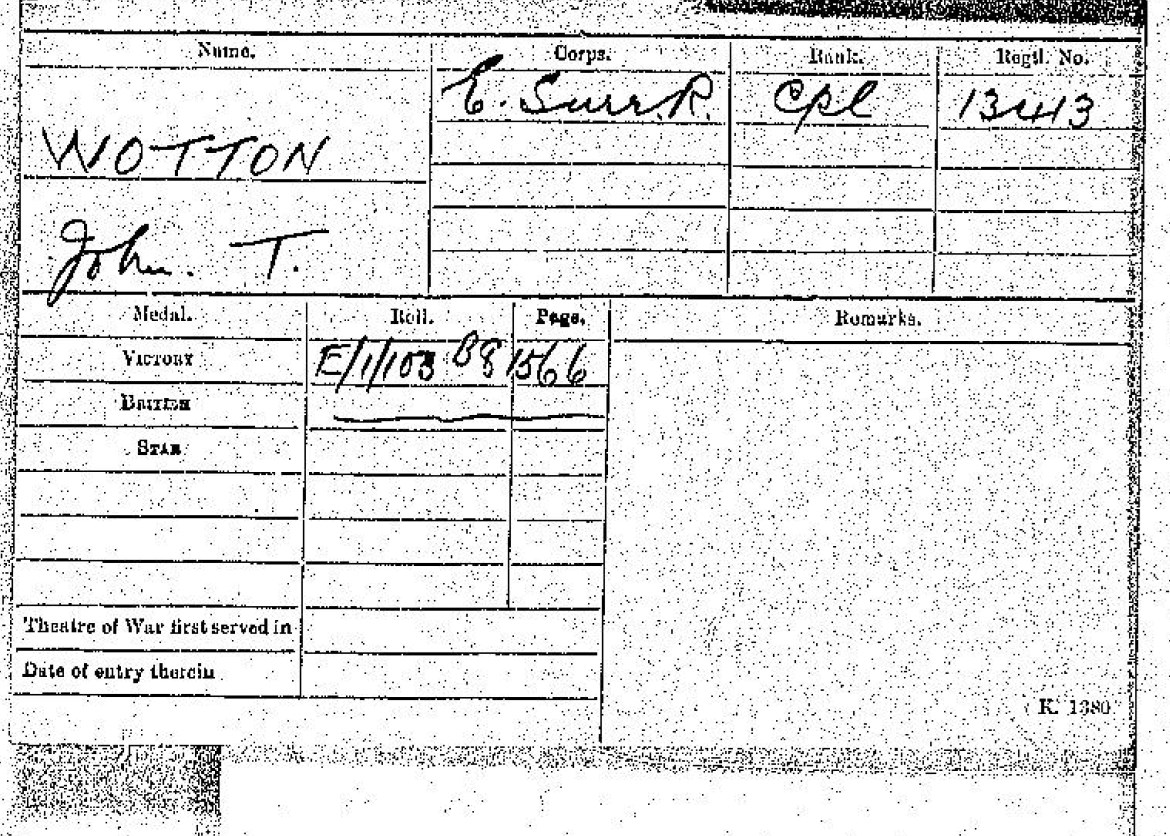 Name. Corps. Rank. Regtl. No.
E. Surr. R. Cpl 13443
WOTTON
John. T.
Medal. Roll. Page. Remarks.
VICTORY E/1/103 B8 1566
BRITISH
STAR
Theatre of War first served in
Date of entry therein
K. 1380